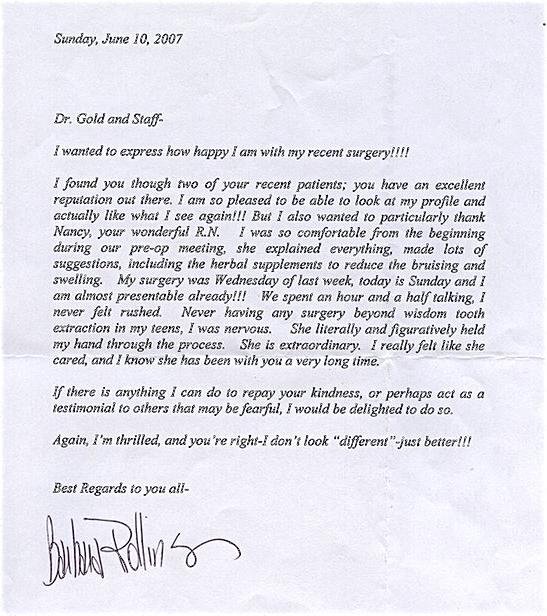 Sunday, June 10, 2007
Dr. Gold and Staff-
I wanted to express how happy I am with my recent surgery!!!!
I found you though two of your recent patients; you have an excellent
reputation out there. I am so pleased to be able to look at my profile and
actually like what I see again!!! But I also wanted to particularly thank
Nancy, your wonderful R.N. I was so comfortable from the beginning
during our pre-op meeting, she explained everything, made lots of
suggestions, including the herbal supplements to reduce the bruising and
swelling. My surgery was Wednesday of last week, today is Sunday and I
am almost presentable already!!! We spent an hour and a half talking, I
never felt rushed. Never having any surgery beyond wisdom tooth
extraction in my teens, I was nervous. She literally and figuratively held
my hand through the process. She is extraordinary. I really felt like she
cared, and I know she has been with you a very long time.
If there is anything I can do to repay your kindness, or perhaps act as a
testimonial to others that may be fearful, I would be delighted to do so.
Again, I'm thrilled, and you're right-I don't look "different"-just better!!!
Best Regards to you all-